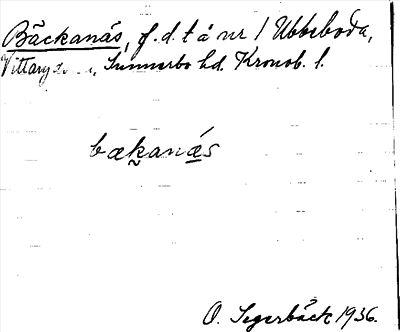 Bäckanäs, f.d. t å nr 1 Ubbeboda,
Vittaryd Sunnerbo hd. Kronob. l.
bækanás
O. Segerbäck 1936.